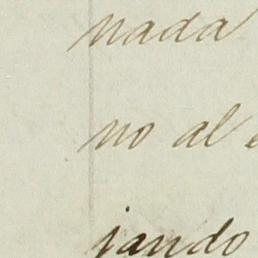 nada
no al
jando